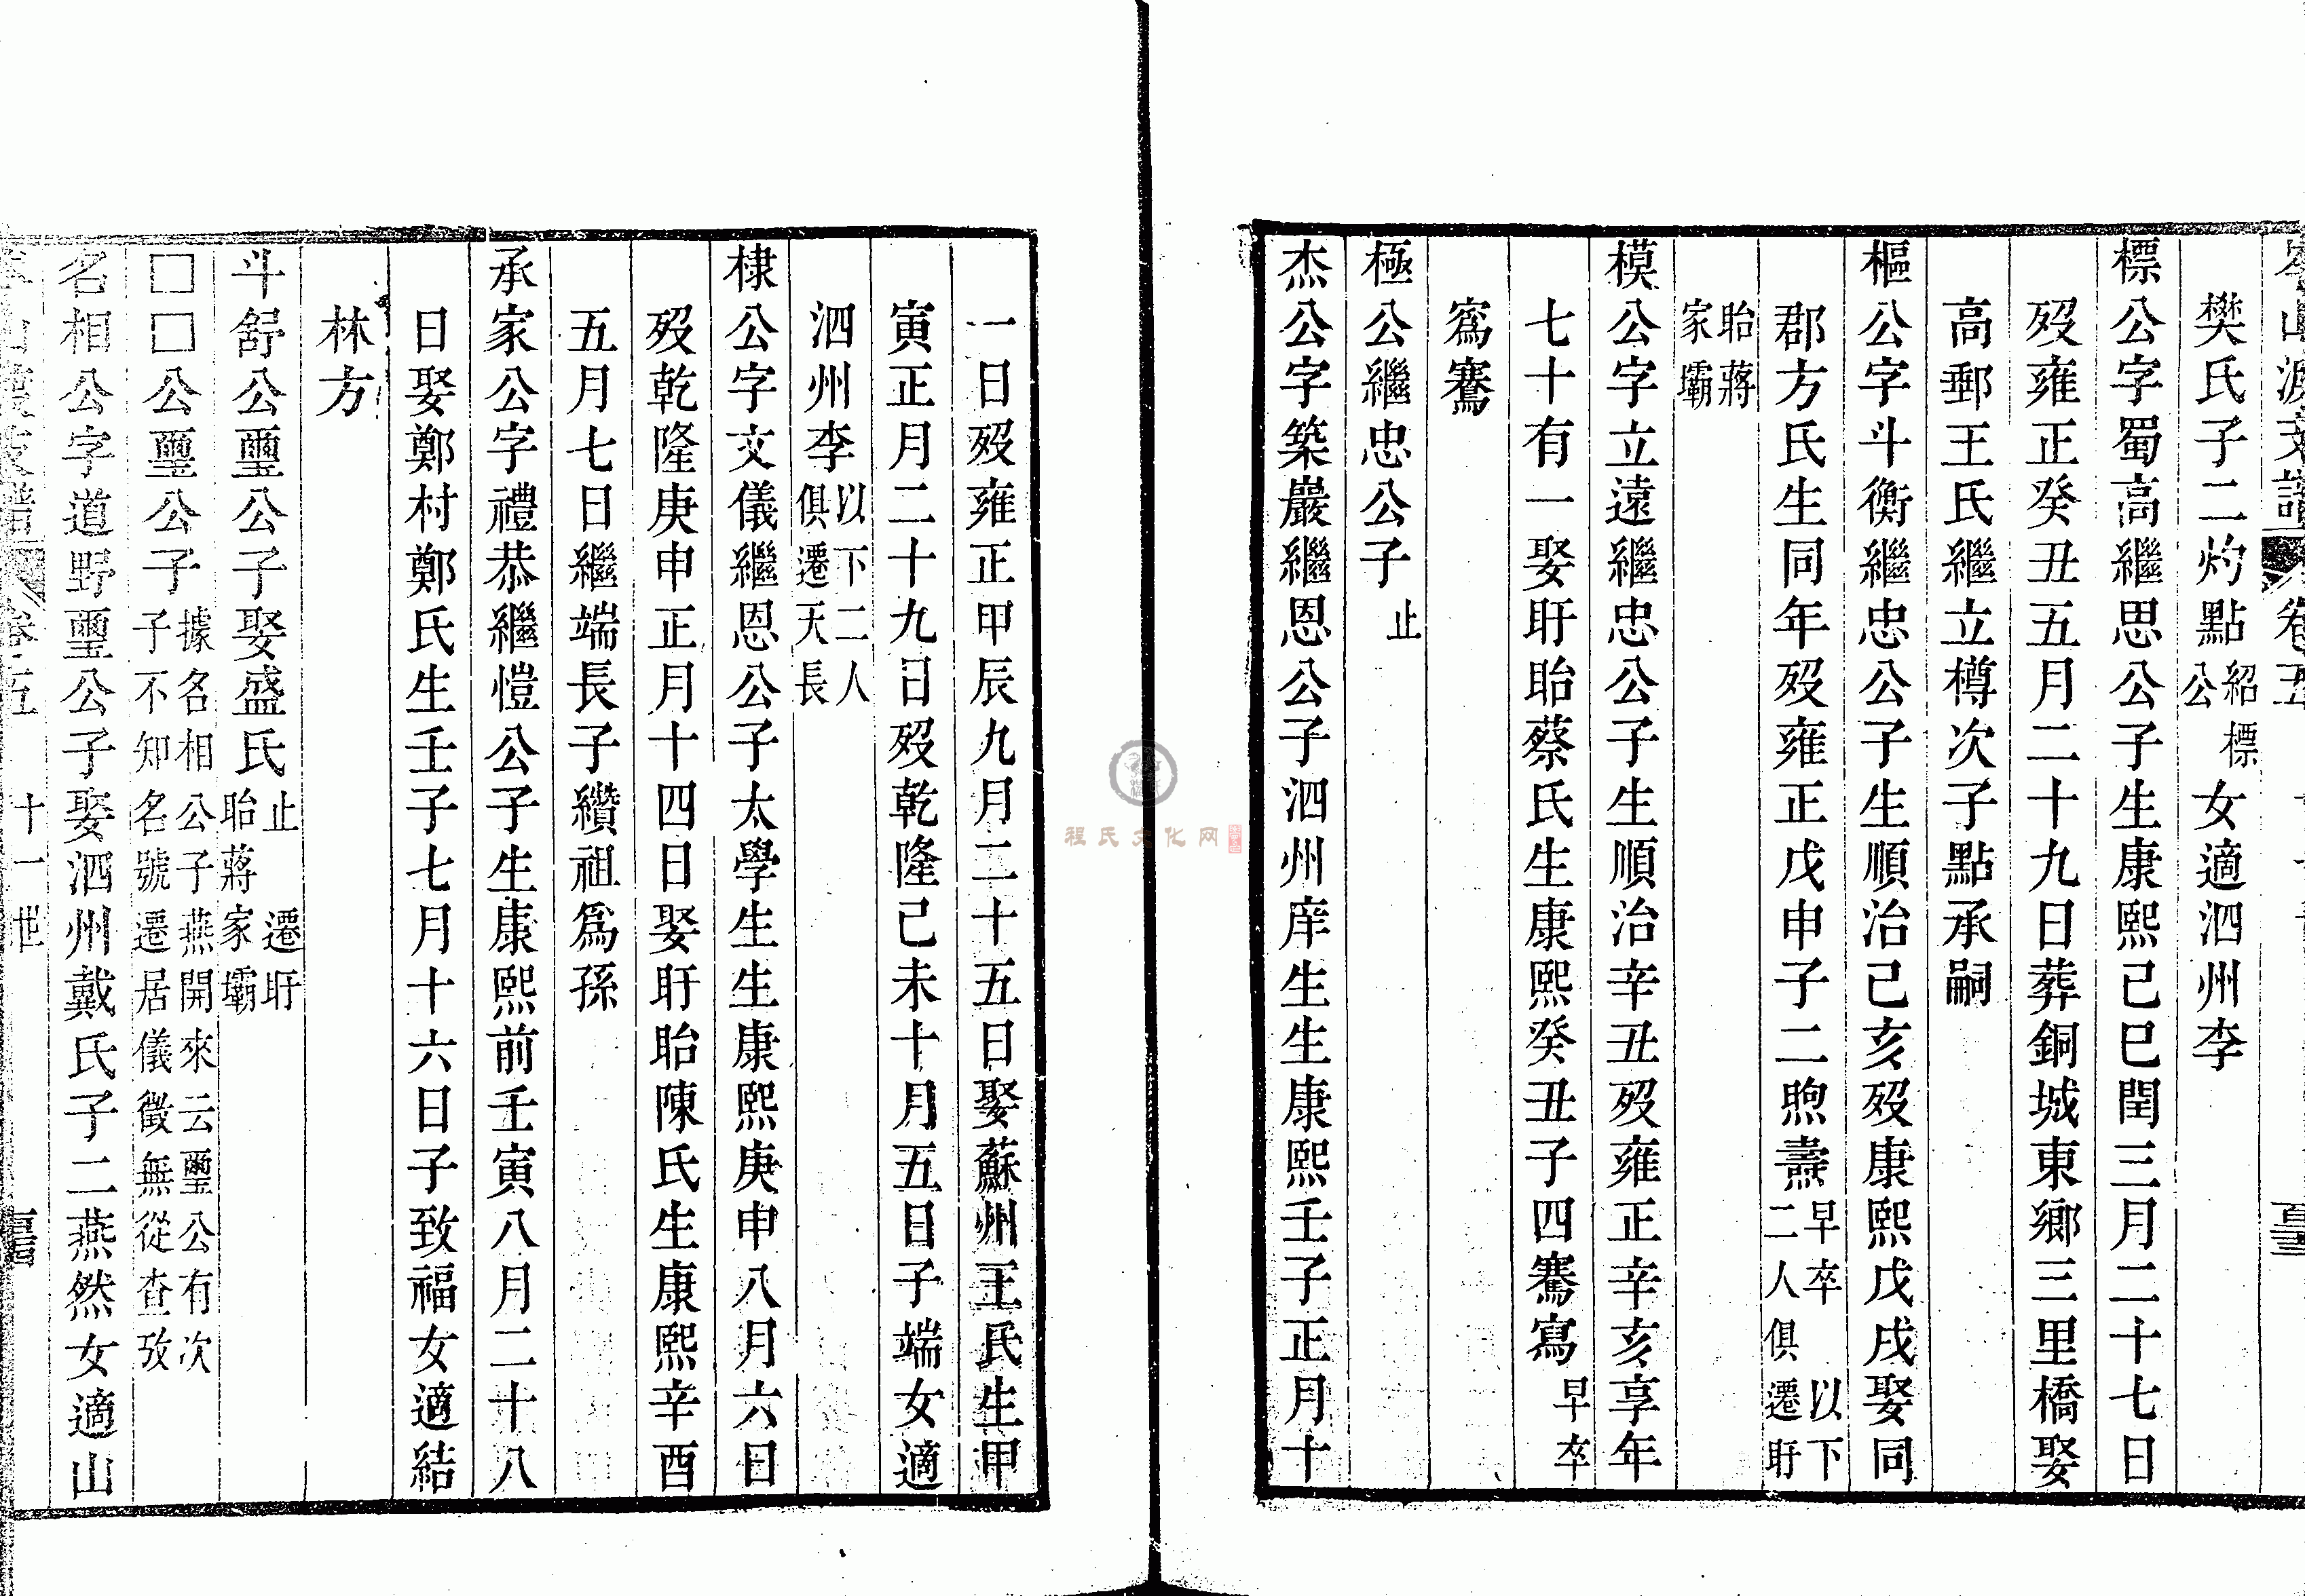 樊氏子二灼點紹標公女適泗州李
標公字蜀高繼思公子生康熙己巳閏三月二十七日
歿雍正癸丑五月二十九日葬銅城東鄉三里橋娶
高郵王氏繼立樽次子點承嗣
樞公字斗衡繼忠公子生順治己亥歿康熙戊戌娶同
郡方氏生同年歿雍正戊申子二煦燾早卒二人俱以下遷盱
眙蔣家壩
模公字立遠繼忠公子生順治辛丑歿雍正辛亥享年
七十有一娶盱眙蔡氏生康熙癸丑子四騫寫早卒
寫騫
極公繼忠公子止
杰公字築巖繼恩公子泗州庠生生康熙壬子正月十
一日歿雍正甲辰九月二十五日娶蘇州王氏生甲
寅正月二十九日歿乾隆己未十月五日子端女適
泗州李以下二人俱遷天長
棣公字文儀繼恩公子太學生生康熙庚申八月六日
歿乾隆庚申正月十四日娶盱眙陳氏生康熙辛酉
五月七日繼端長子纘祖爲孫
承家公字禮恭繼愷公子生康熙前壬寅八月二十八
日娶鄭村鄭氏生壬子七月十六日子致福女適結
林方
斗舒公璽公子娶盛氏止遷盱眙蔣家壩
□□公璽公子據名相公子燕開來云璽公有次子不知名號遷居儀徵無從查攷
名相公字道野璽公子娶泗州戴氏子二燕然女適山
卷五 十一世
程氏文化网